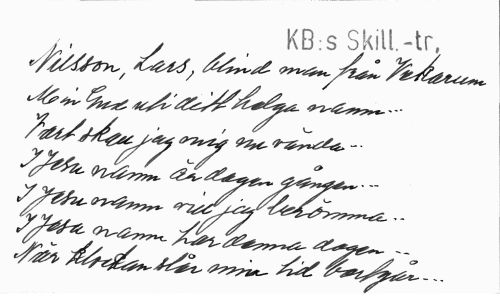 KB:s Skill.-tr.
Nilsson, Lars, blind man från Vekarum
Min Gud uti ditt helga namn...
Vart skall jag mig nu vända...
I Jesu namn är dagen gången...
I Jesu namn vill jag berömma...
I Jesu namn har denna dagen...
När klockan slår min tid bortgår...